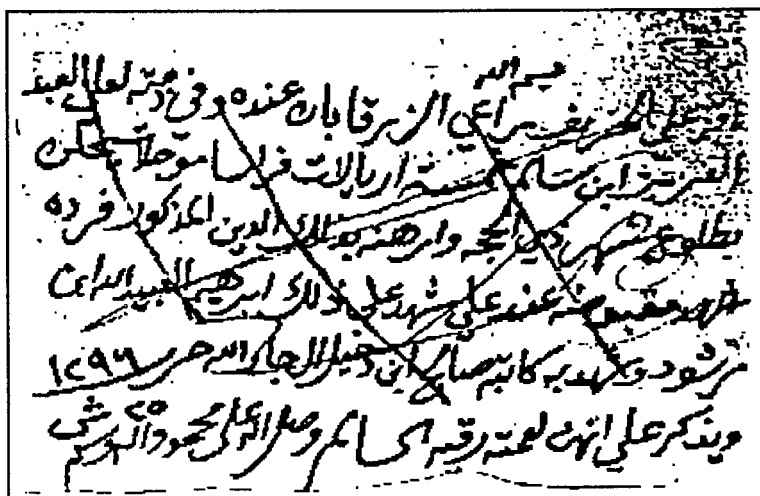 بسم الله
اقر علي الخريف راعي الزرقا بان عنده وفي ذمته لعلي العبد
العزيز ابن سليم خمسة اريالات فرانسا مؤجلات يحلن
بطلوع شهر ذي الحجة وارهنه بذلك الدين المذكور فرده
عليه علي شهد على ذلك ابراهيم العبيد الله ابن
مرشود وشهد به كاتبه صالح ابن دخيل الله الجارالله حرر ١٢٩٦
ويذكر علي انهن لعمته رقيه السالم وصلى الله على محمد واله وسلم ٢٥ ش